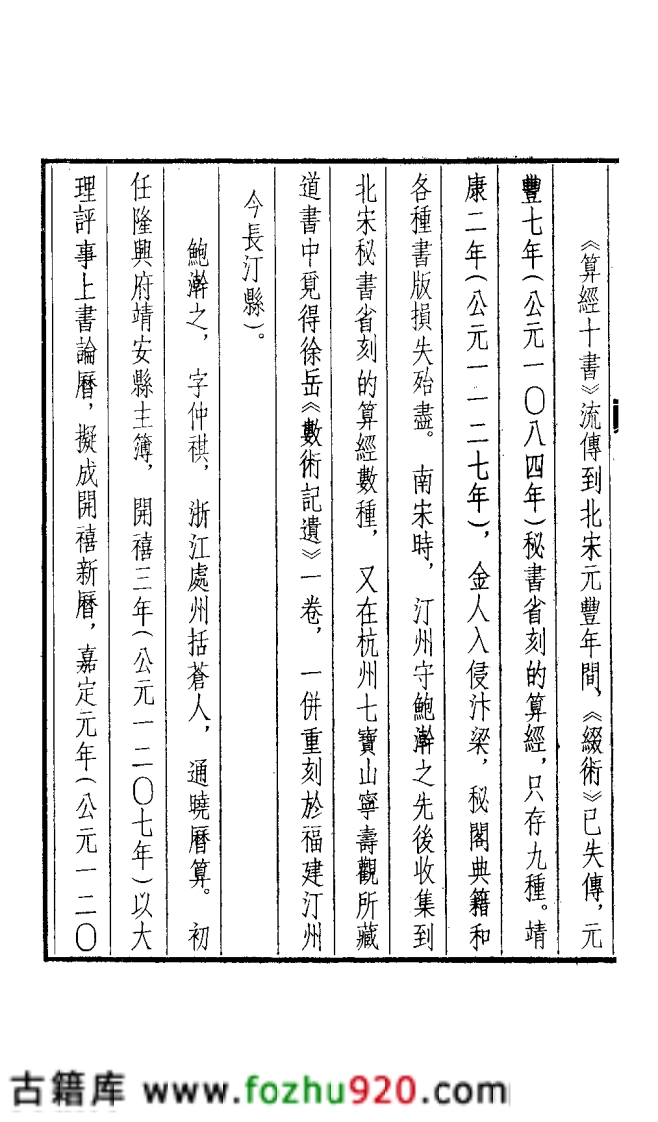 《算經十書》流傳到北宋元豐年間，《綴術》已失傳，元
豐七年（公元一〇八四年）秘書省刻的算經，只存九種。靖
康二年（公元一一二七年），金人入侵汴梁，秘閣典籍和
各種書版損失殆盡。南宋時，汀州守鮑澣之先後收集到
北宋秘書省刻的算經數種，又在杭州七寶山寧壽觀所藏
道書中覓得徐岳《數術記遺》一卷，一併重刻於福建汀州
今長汀縣）。
鮑澣之，字仲祺，浙江處州括蒼人，通曉曆算。初
任隆興府靖安縣主簿，開禧三年（公元一二〇七年）以大
理評事上書論曆，擬成開禧新曆，嘉定元年（公元一二〇
古籍库 www.fozhu920.com